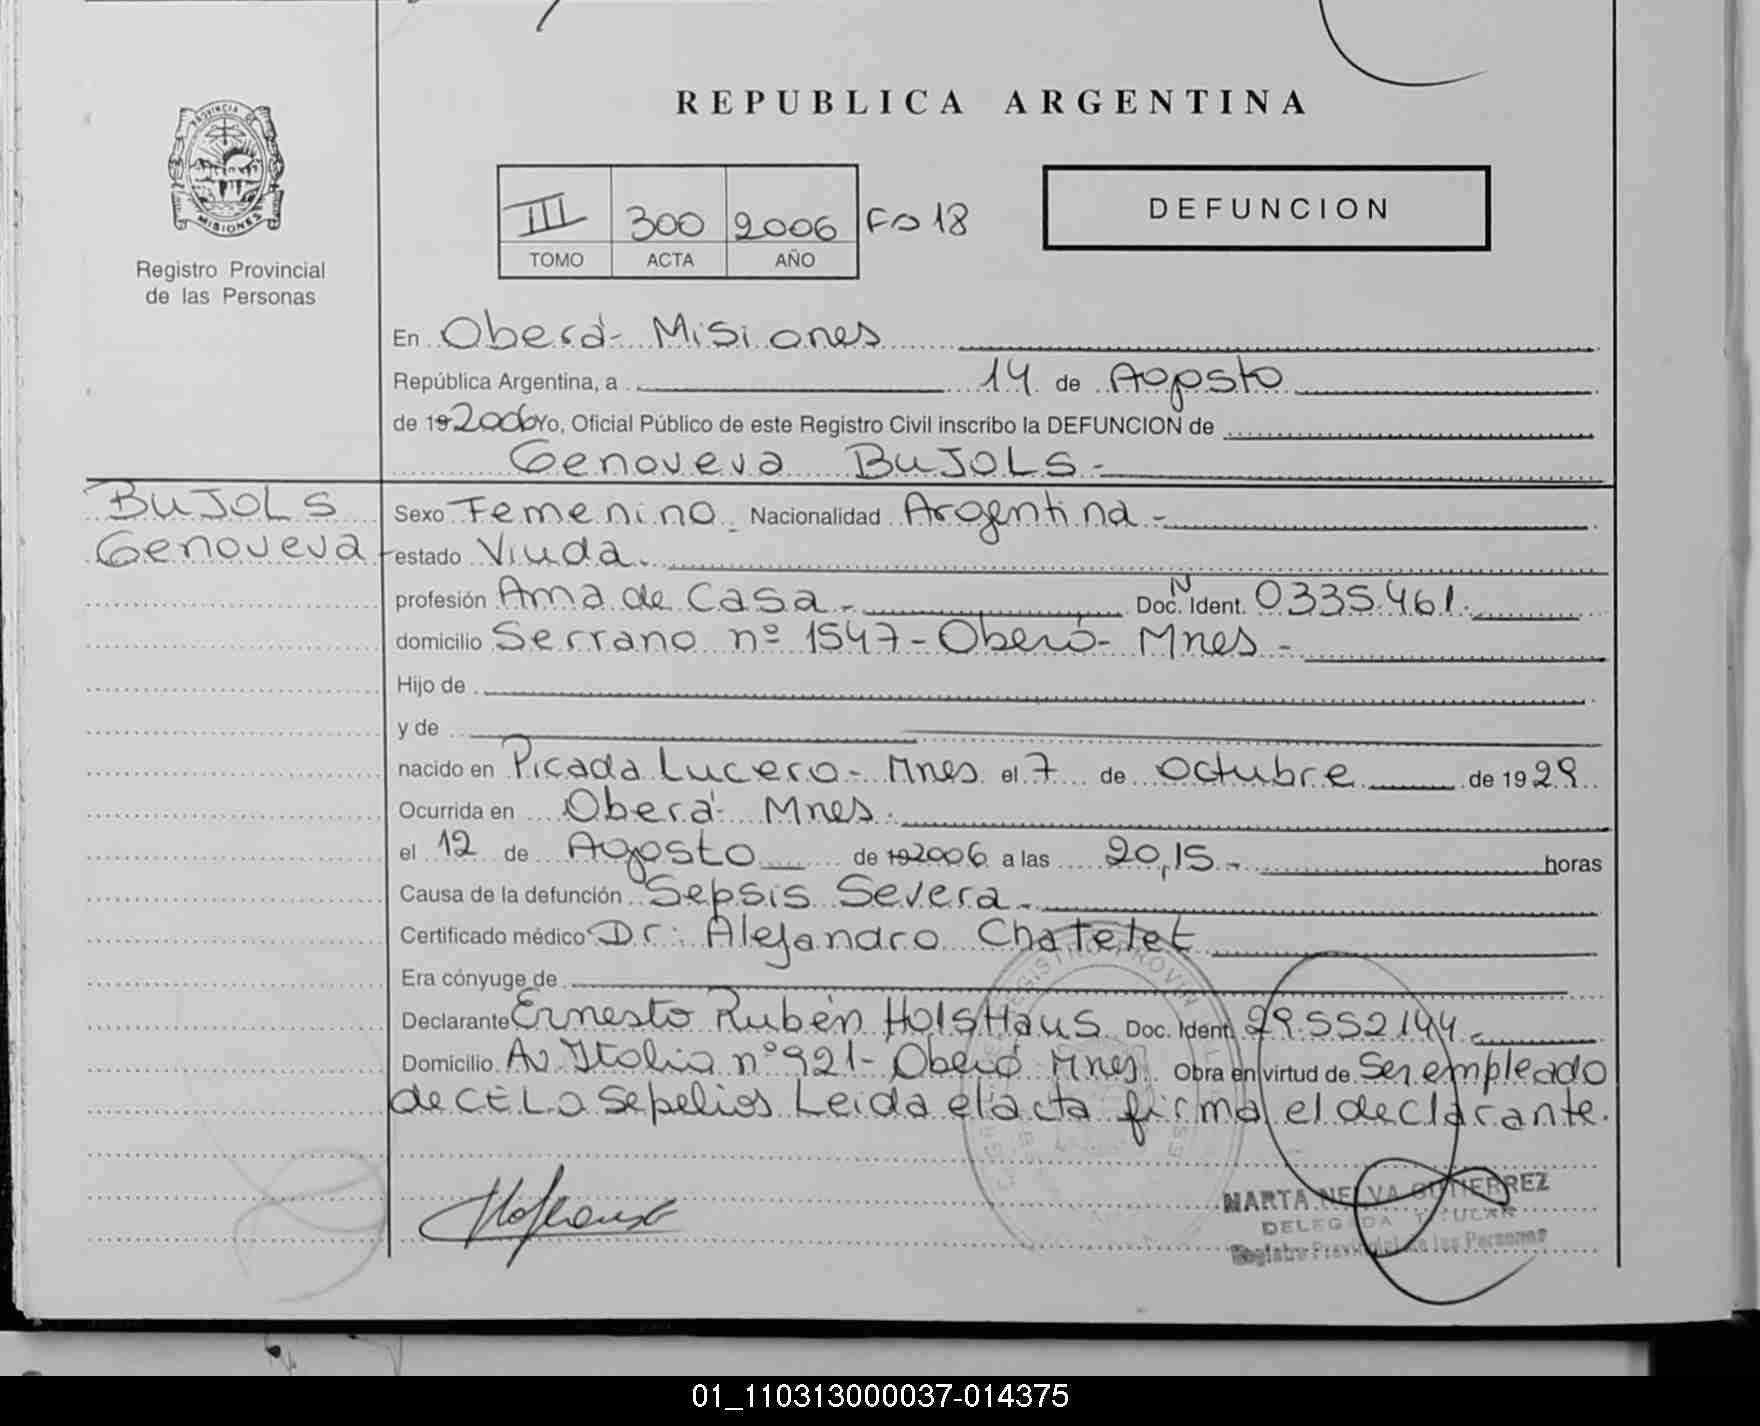 REPUBLICA ARGENTINA
PROVINCIA DE
MISIONES
Registro Provincial
de las Personas
III 300 2006 Fo 18
TOMO ACTA AÑO
DEFUNCION
En Oberá - Misiones
República Argentina, a 14 de Agosto
de 19 2006 Yo, Oficial Público de este Registro Civil inscribo la DEFUNCION de
Genoveva BUJOLS -
BUJOLS
Genoveva
Sexo Femenino - Nacionalidad Argentina -
estado Viuda.
profesión Ama de Casa - Doc. N Ident. 0335461.
domicilio Serrano nº 1547 - Oberá - Mnes -
Hijo de
y de
nacido en Picada Lucero - Mnes el 7 de Octubre de 1929.
Ocurrida en Oberá - Mnes.
el 12 de Agosto de 19 2006 a las 20,15 - horas
Causa de la defunción Sepsis Severa -
Certificado médico Dr: Alejandro Chatelet
Era cónyuge de
Declarante Ernesto Rubén HolsHaus Doc. Ident. 29.552144 -
Domicilio Av Italia nº 921 - Oberá Mnes Obra en virtud de Ser empleado
de CELO Sepelios Leida el acta firma el declarante.
MARTA NELVA GUTIERREZ
DELEGADA TITULAR
Registro Provincial de las Personas
01_110313000037-014375